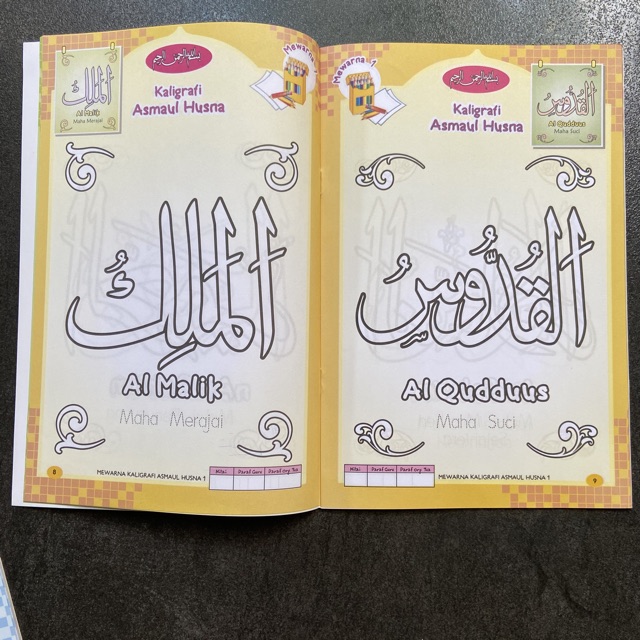 بسم الله الرحمن الرحيم
Mewarna - 1
Kaligrafi
Asmaul Husna
الملك
Al Malik
Maha Merajai
الملك
Al Malik
Maha Merajai
Nilai Paraf Guru Paraf Org. Tua
8 MEWARNA KALIGRAFI ASMAUL HUSNA 1
Mewarna - 1
بسم الله الرحمن الرحيم
Kaligrafi
Asmaul Husna
القدوس
Al Qudduus
Maha Suci
القُدُّوسُ
Al Qudduus
Maha Suci
Nilai Paraf Guru Paraf Org. Tua
MEWARNA KALIGRAFI ASMAUL HUSNA 1 9